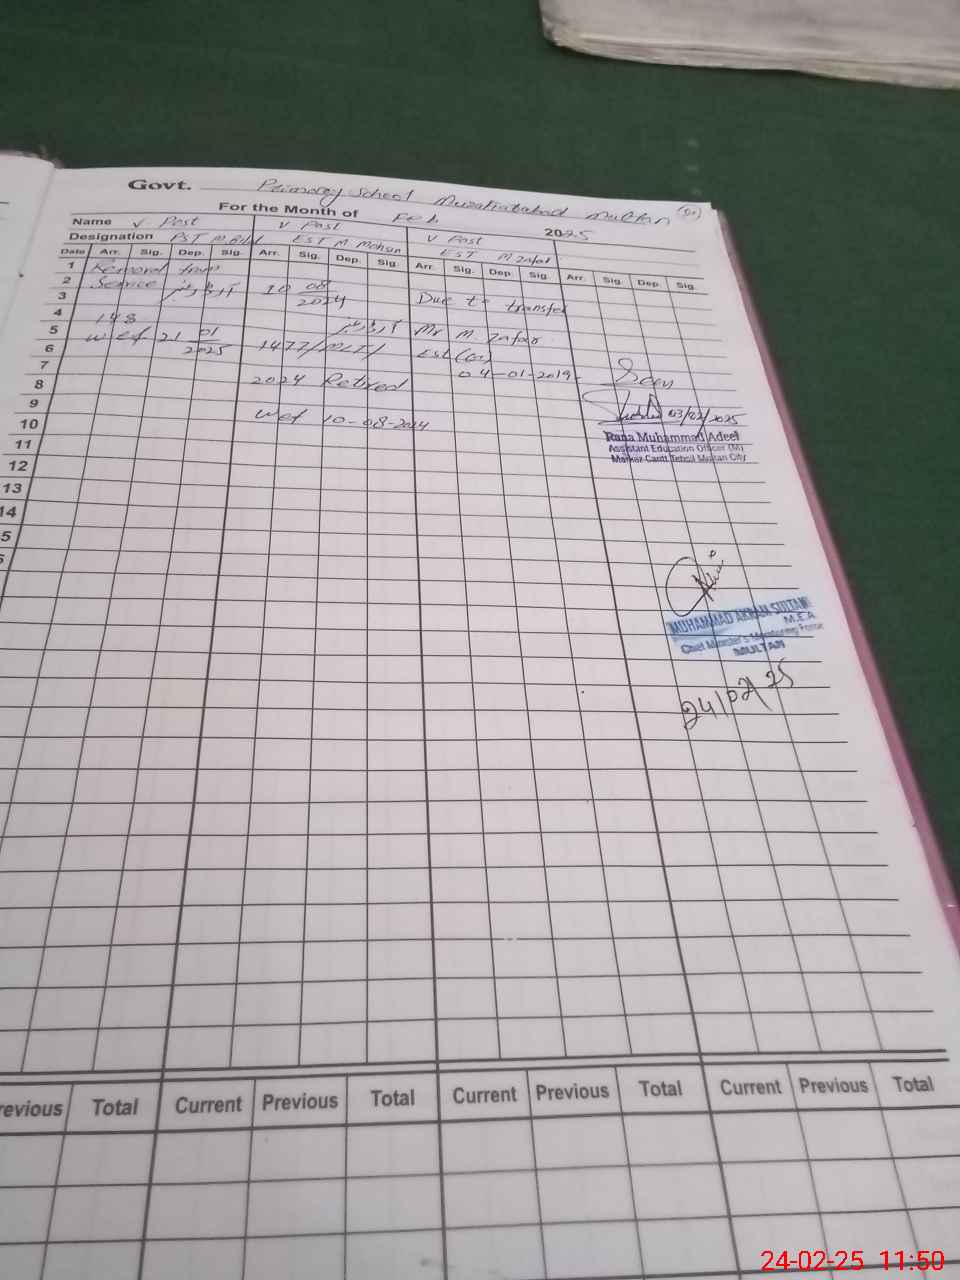 Govt. Primary School Muzafarabad Multan
For the Month of Feb 2025
Name V Post V Post V Post
Designation PST M. Bilal EST M Mohsin EST M Zafar
Date Arr. Sig. Dep. Sig. Arr. Sig. Dep. Sig. Arr. Sig. Dep. Sig. Arr. Sig. Dep. Sig.
1 Removal from
2 Service آرڈر نمبر 10 08 Due to transfer
3 2024
4 148 آرڈر نمبر Mr M. Zafar
5 wef 21 01 1477/MLT/ Est
6 2025 04-01-2019
7 2024 Retired Seen
8
9 wef 10-08-2024 03/02/2025
10 Rana Muhammad Adeel
11 Assistant Education Officer (M)
12 Markaz Cantt Tehsil Multan City
13
14
5
MUHAMMAD AKRAM SULTAN
M.E.A
Chief Minister's Monitoring Force
MULTAN
24/02/25
revious Total Current Previous Total Current Previous Total Current Previous Total
24-02-25 11:50